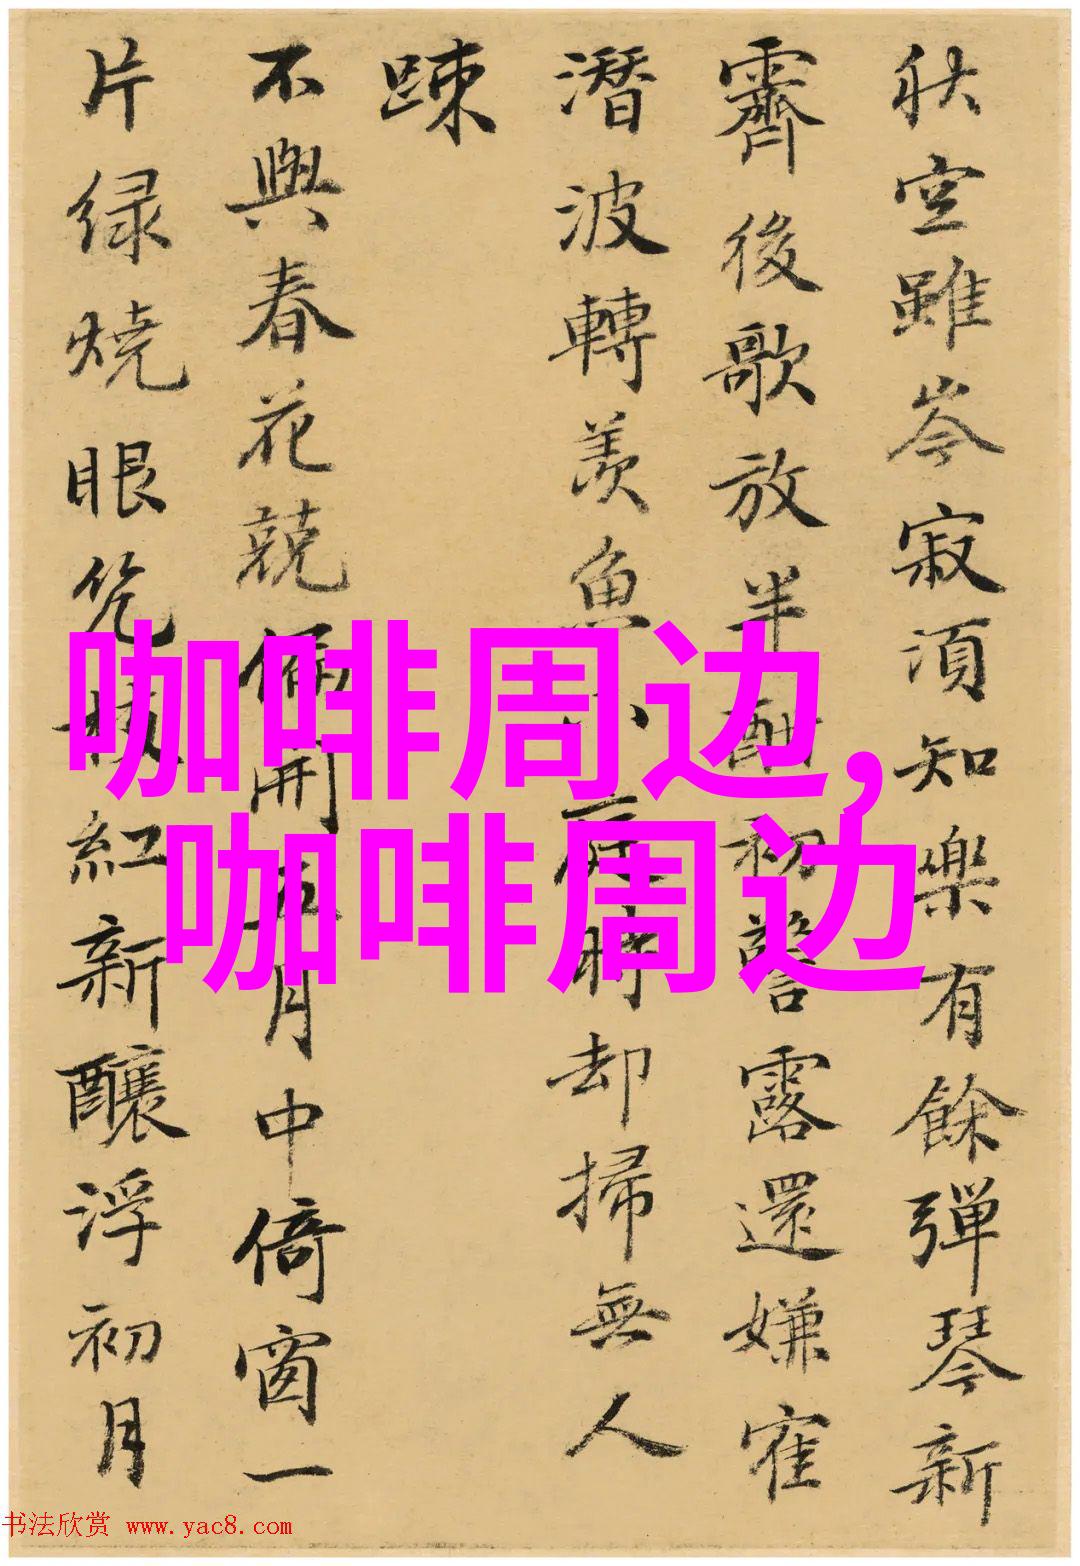 秋空雖岑寂須知樂有餘彈琴新
霽後歌放半酣初警露還嫌寉
潛波轉羨魚小時却掃無人
踈
不與春花競偏開五月中倚窗一
片緑燒眼枝紅新釀浮初月
咖啡周边,
咖啡周边
书法欣赏 www.yac8.com